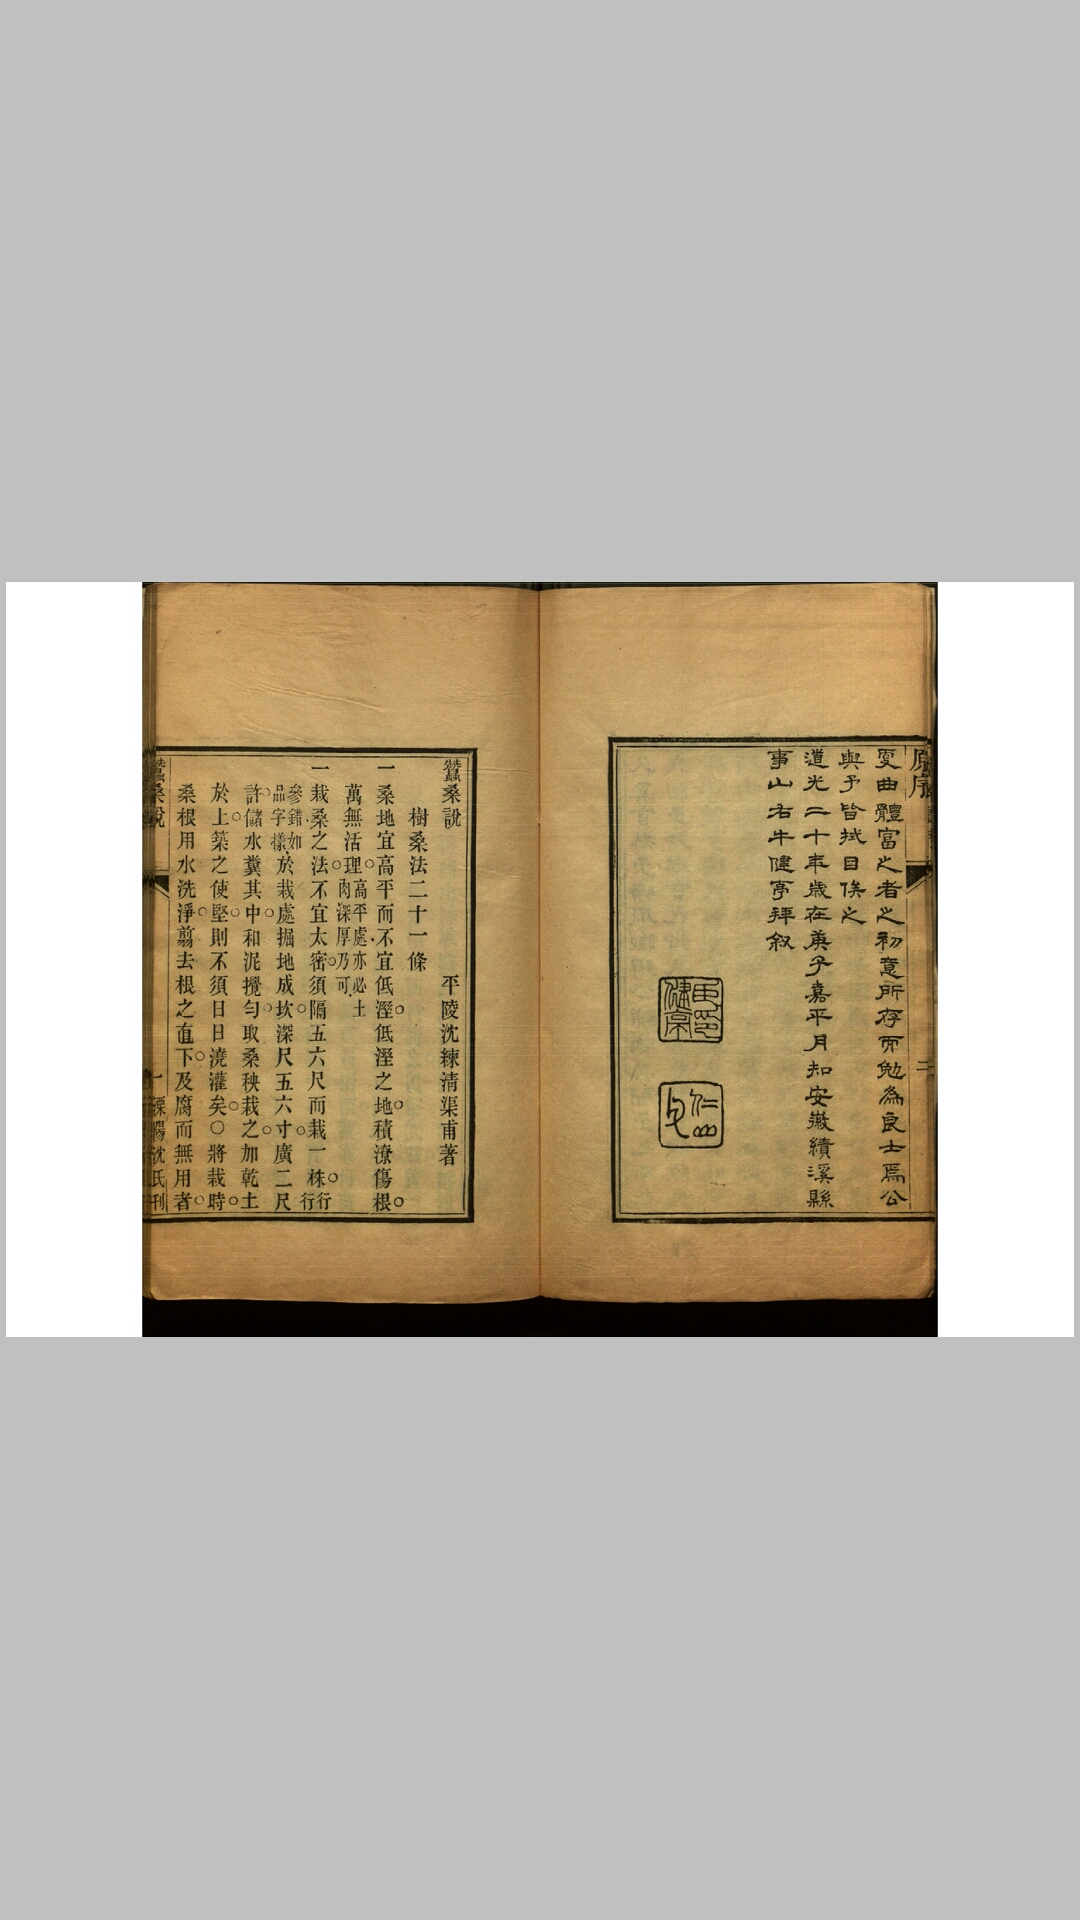 原序
二
更曲體富之者之初意所存而勉為良士焉公
與予皆拭目俟之
道光二十年歲在庚子嘉平月知安徽績溪縣
事山右牛健亭拜叙
蠶桑說
平陵沈練清渠甫著
樹桑法二十一條
一桑地宜高平而不宜低溼低溼之地積潦傷根
萬無活理高平處亦必土肉深厚乃可
一栽桑之法不宜太密須隔五六尺而栽一株行行
參錯如品字樣於栽處掘地成坎深尺五六寸廣二尺
許儲水糞其中和泥攪勻取桑秧栽之加乾土
於上築之使堅則不須日日澆灌矣○將栽時
桑根用水洗淨翦去根之直下及腐而無用者
蠶桑說
一
溧陽沈氏刊